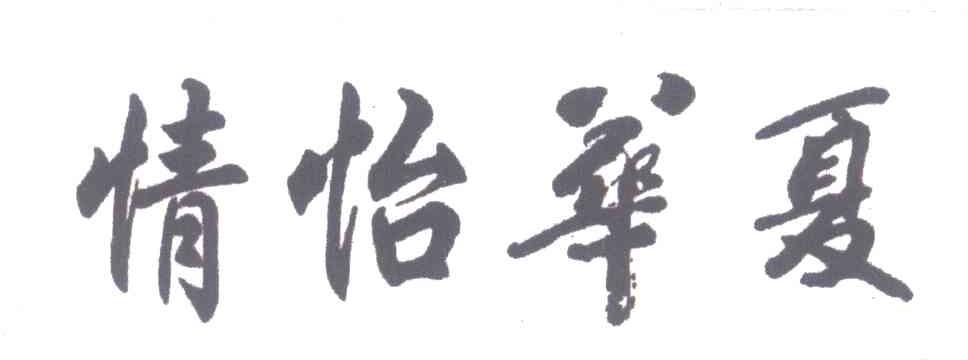 情怡華夏